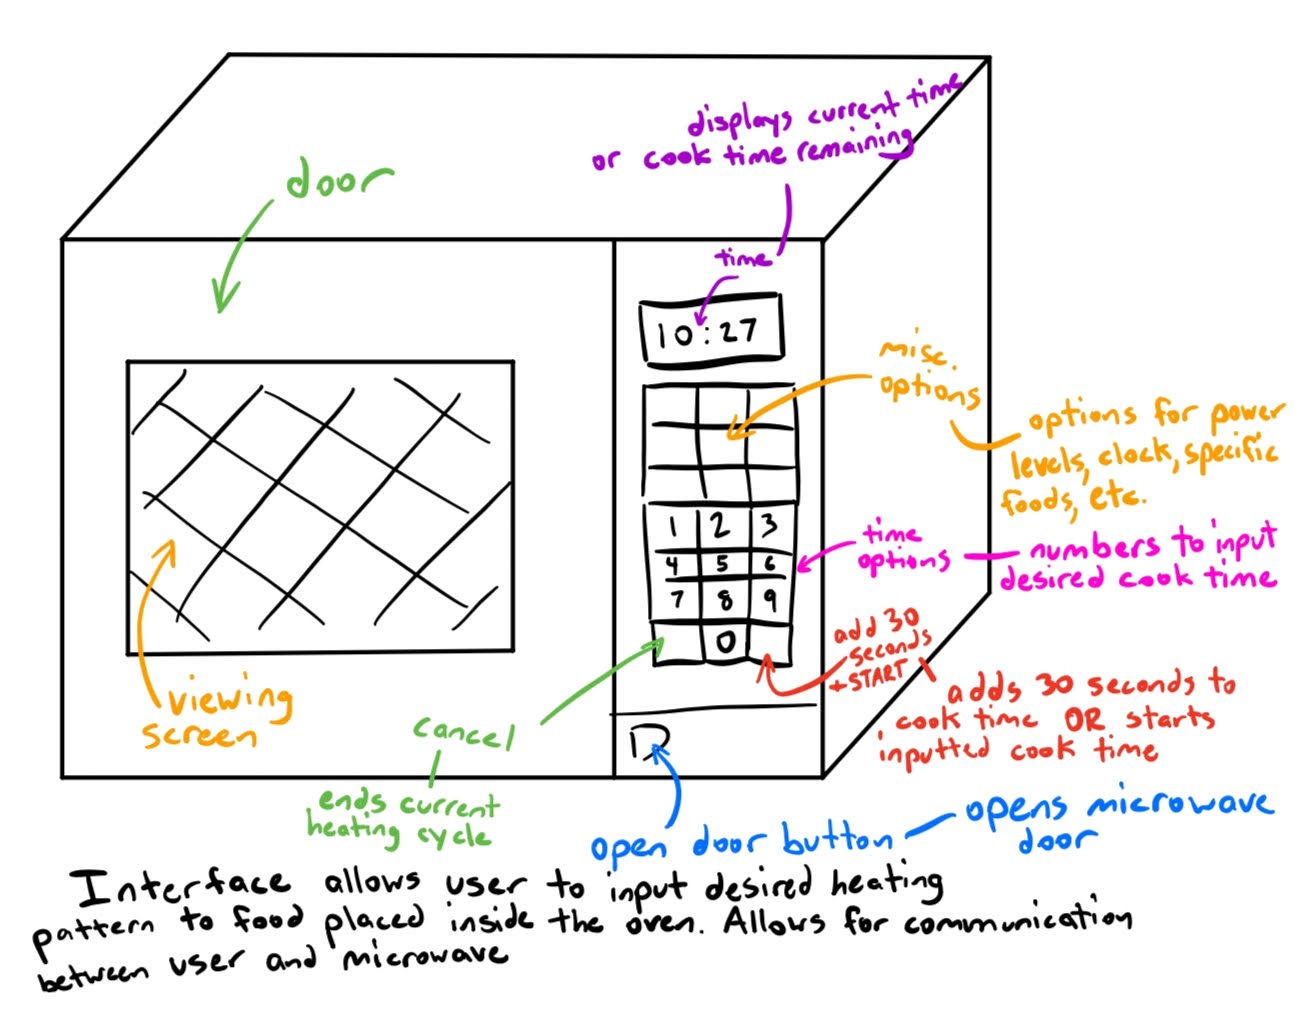 displays current time
or cook time remaining
door
time
10:27
misc.
options
options for power
levels, clock, specific
foods, etc.
1 2 3
4 5 6
7 8 9
0
time
options
numbers to input
desired cook time
add 30
seconds
+START
adds 30 seconds to
cook time OR starts
inputted cook time
viewing
screen
cancel
ends current
heating cycle
open door button
opens microwave
door
Interface allows user to input desired heating
pattern to food placed inside the oven. Allows for communication
between user and microwave